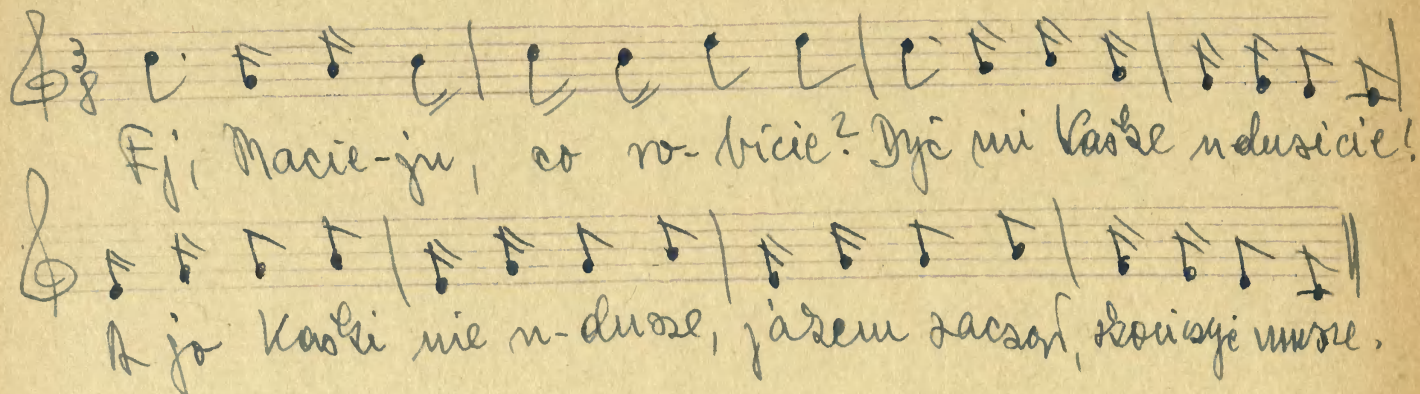 3
8
Ej, Macie-ju, co ro-bicie? Dyć mi Kaśke udusicie!
A jo Kaśki nie u-dusze, jazem zacząn, skończyć musze.